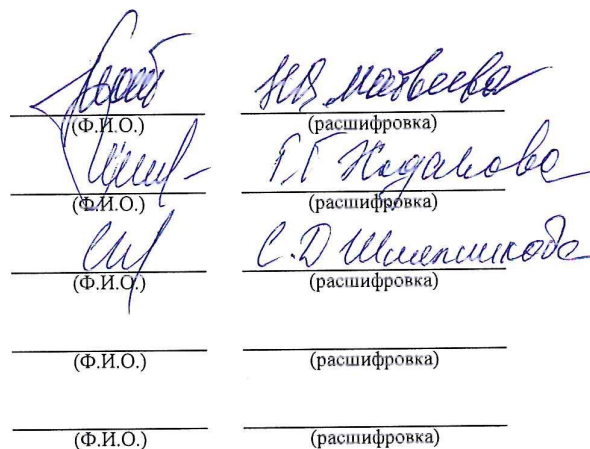 Н.В. Матвеева
(Ф.И.О.) (расшифровка)
Г.Г.
(Ф.И.О.) (расшифровка)
С.Д Шляпникова
(Ф.И.О.) (расшифровка)
(Ф.И.О.) (расшифровка)
(Ф.И.О.) (расшифровка)